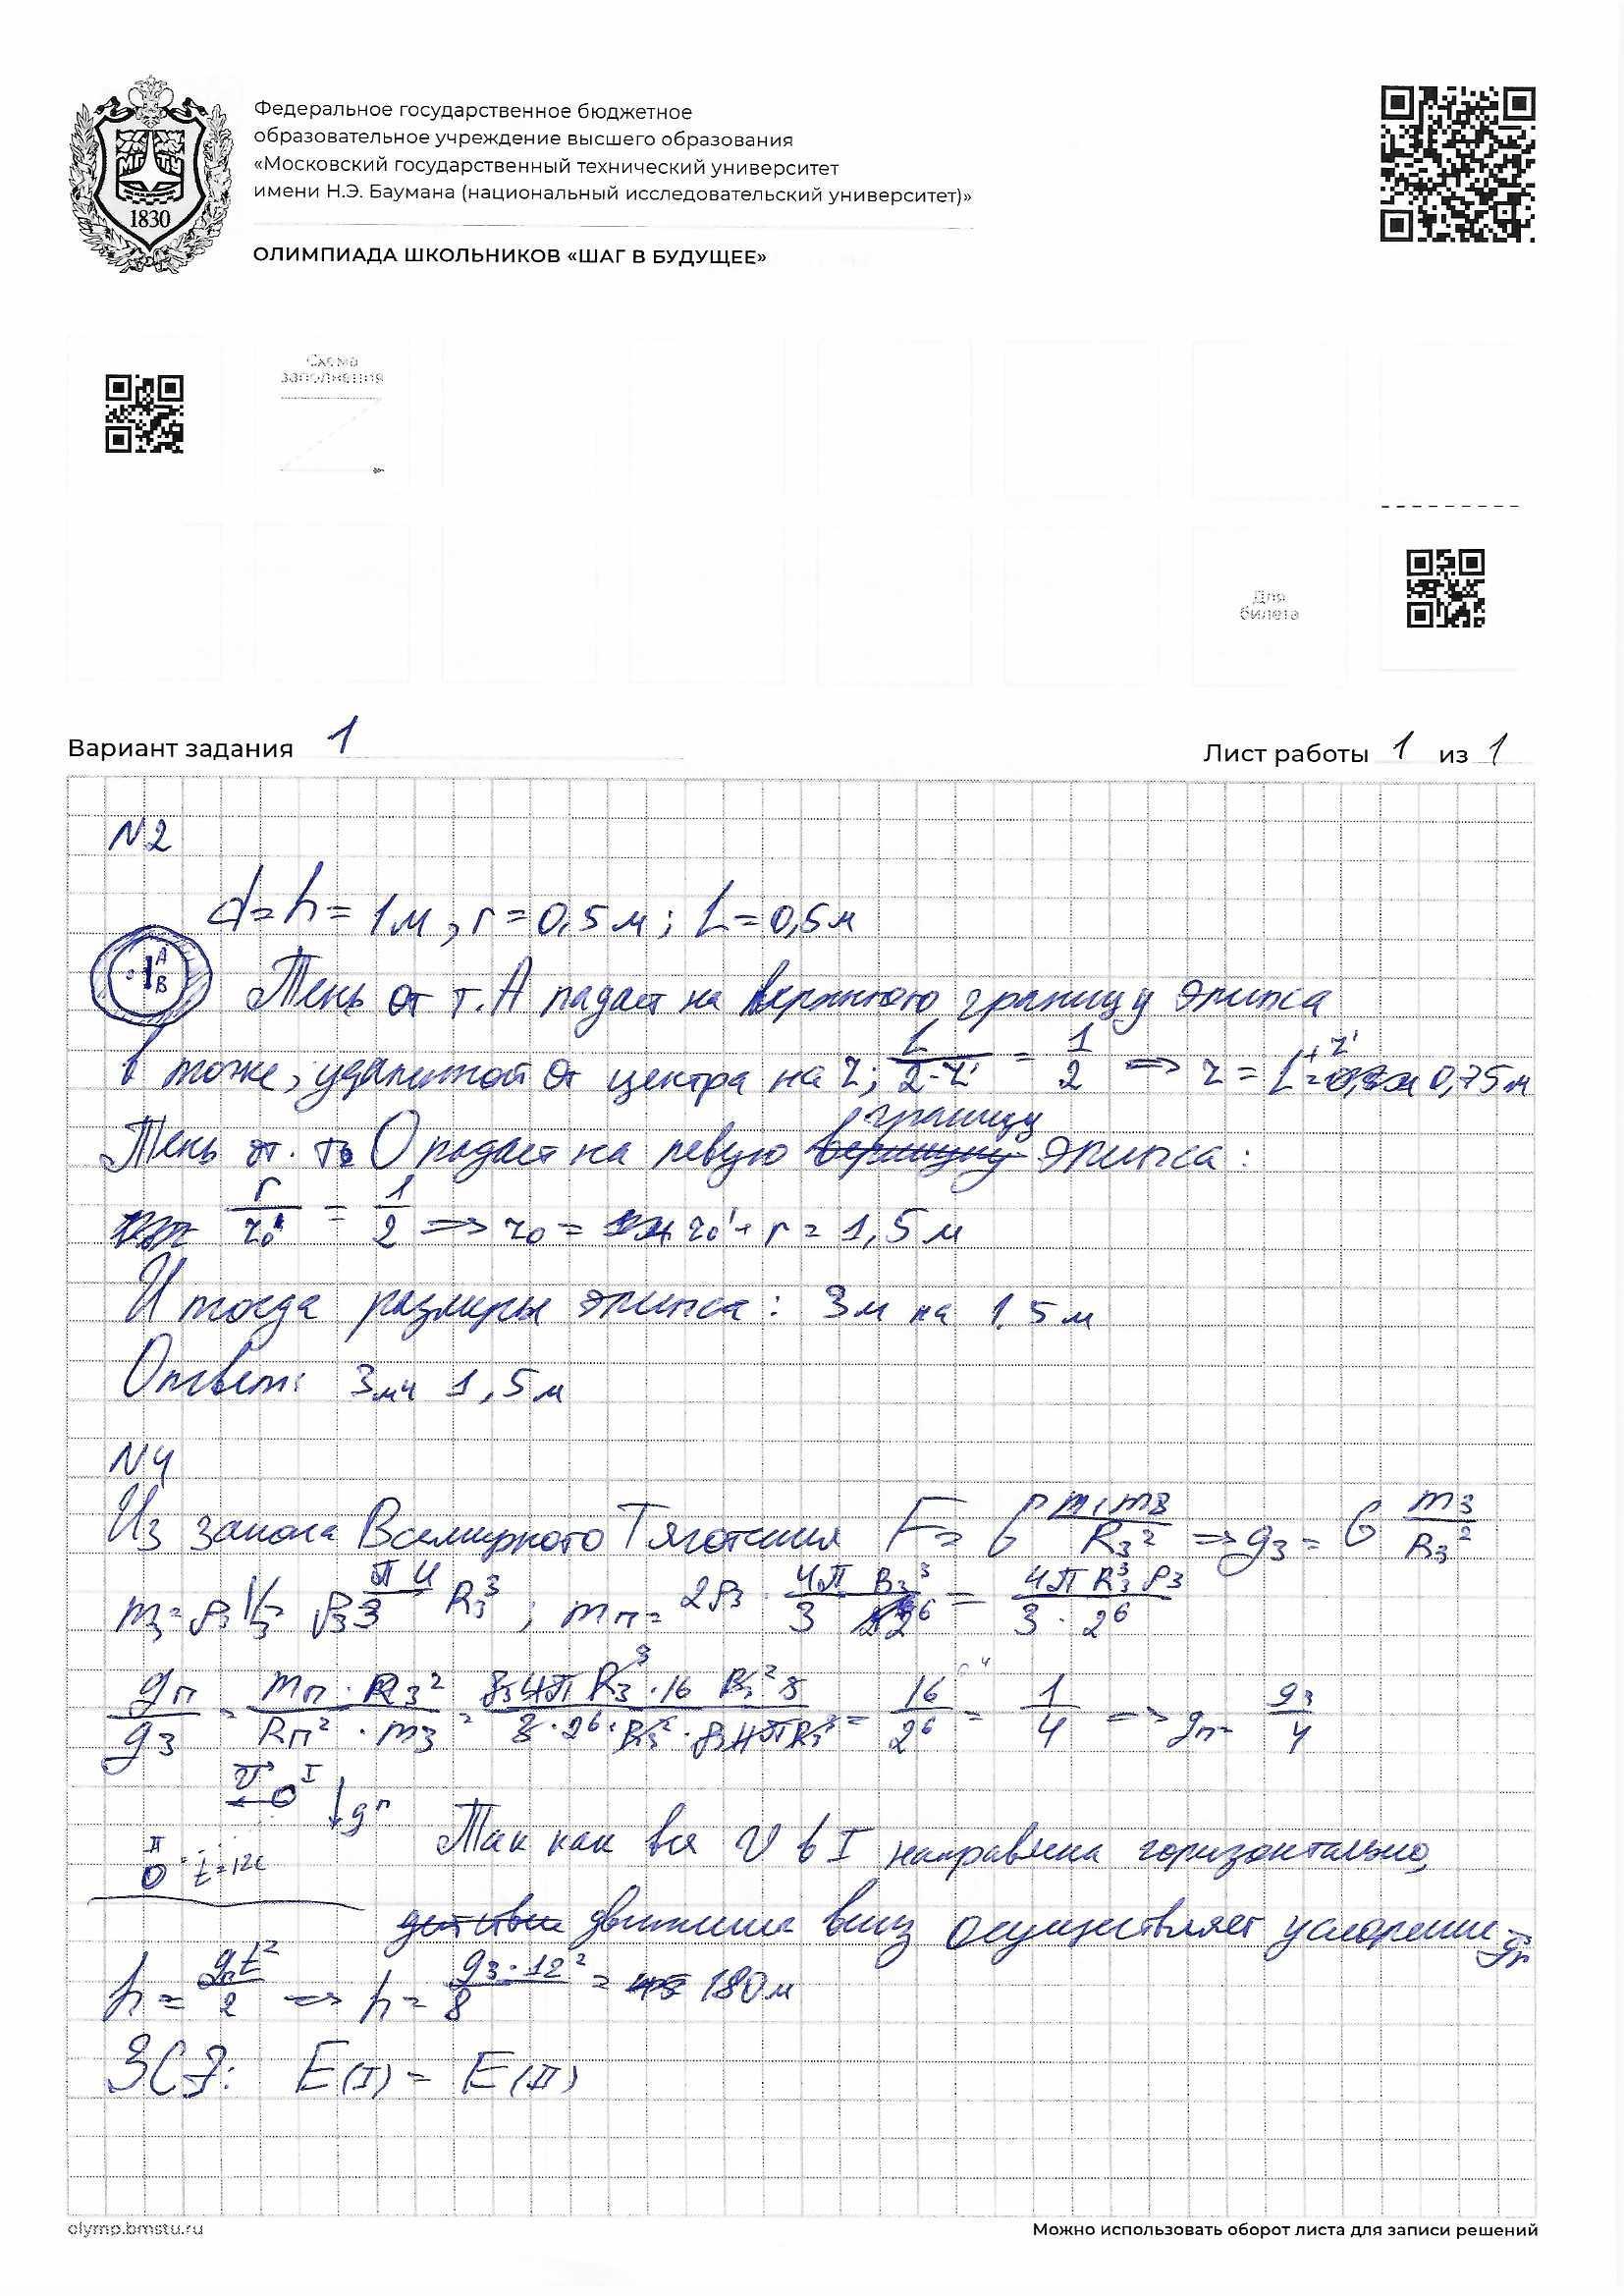 Федеральное государственное бюджетное
образовательное учреждение высшего образования
«Московский государственный технический университет
имени Н.Э. Баумана (национальный исследовательский университет)»
МГТУ
1830
ОЛИМПИАДА ШКОЛЬНИКОВ «ШАГ В БУДУЩЕЕ»
Схема
заполнения
Для
билета
Вариант задания 1
Лист работы 1 из 1
N2
d=h= 1м, r=0,5м; L=0,5м
A
B
Тень от т.А падает на границу эпипса
в удалённой от центра на r; = 1/2 => r = L + r' = 0,75м
Тень от т. О падает на левую границу эпипса:
r/r₀' = 1/2 => r₀ = r₀' + r = 1,5 м
И тогда размеры эпипса: 3м на 1.5 м
Ответ: 3м и 1,5м
N4
Из закона Всемирного Тяготения F = G m₁mз/Rз² => gз = G mз/Rз²
mз = ρз π4/3 Rз³ ; mп = 2ρз · 4π Rз³/3 · 2⁶ = 4π Rз³ ρз/3 · 2⁶
gп/gз = mп · Rз²/Rп² · mз = 16/2⁶ = 1/4 => gп = gз/4
v I gп
II t=12с
Так как вся v в I направлена горизонтально,
движение вниз осуществляет ускорение gп
h = gпt²/2 => h = gз·12²/8 = 180м
ЗСЭ: E(I) = E(II)
olymp.bmstu.ru
Можно использовать оборот листа для записи решений